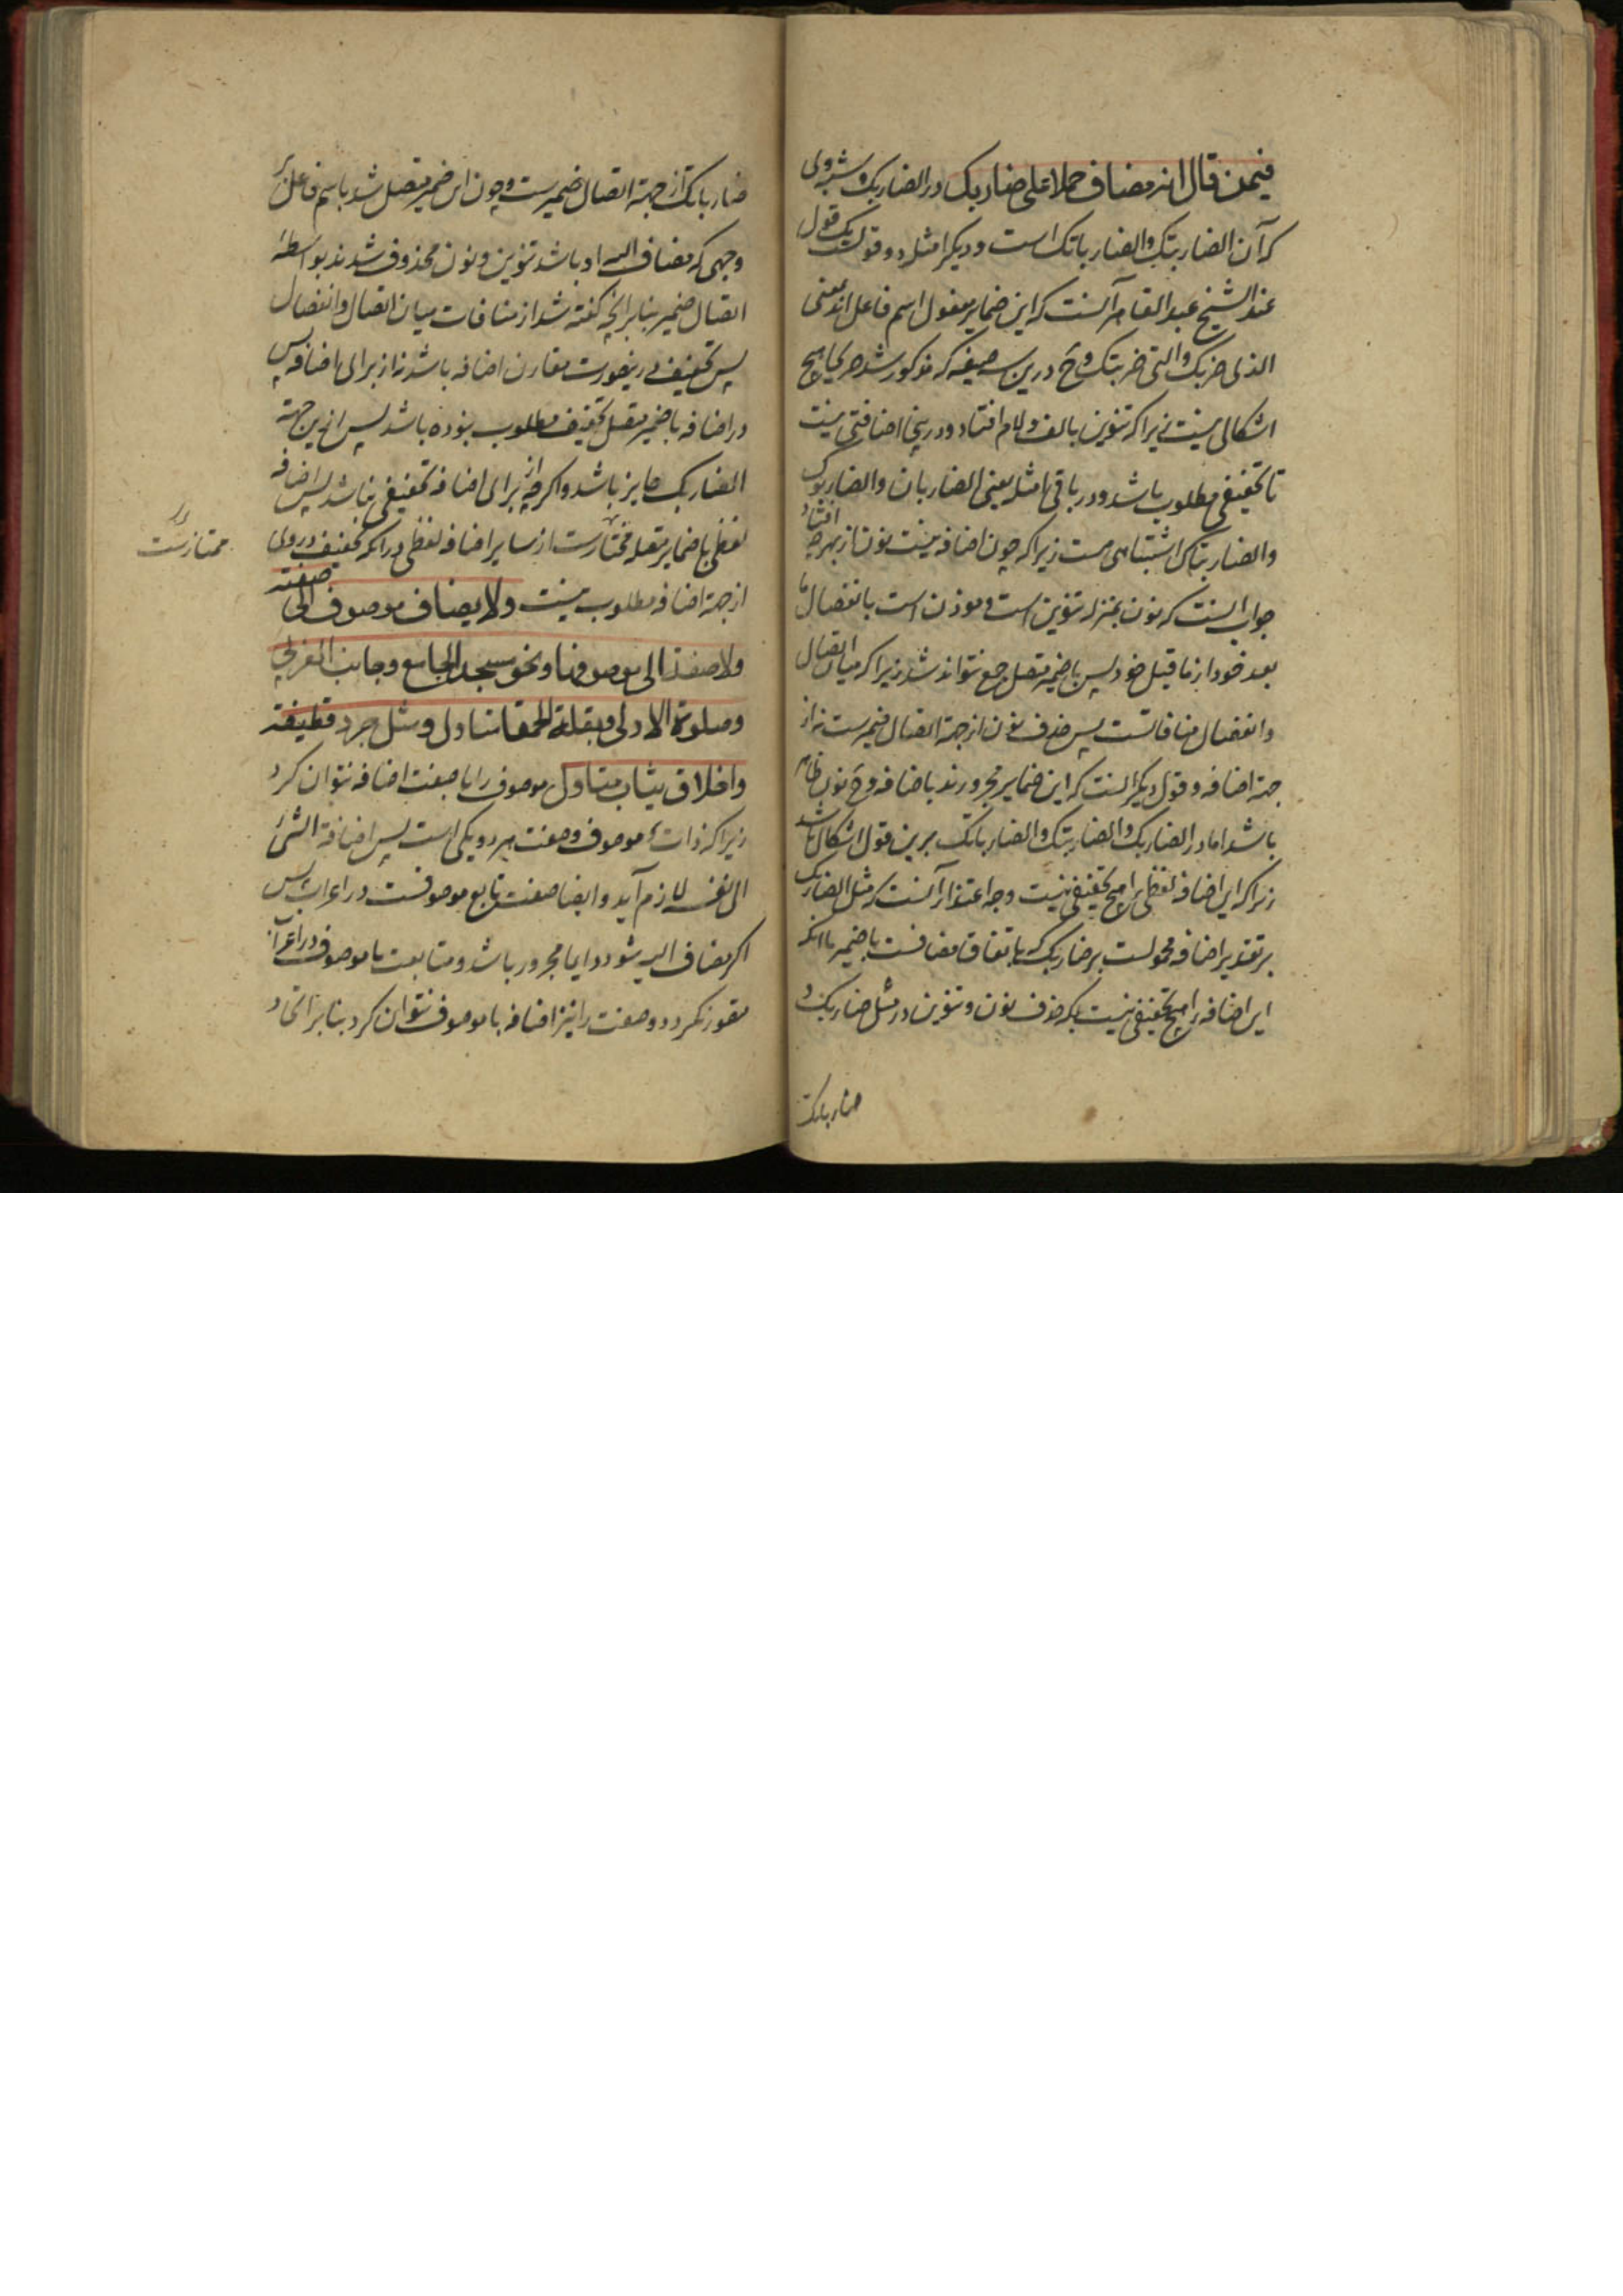 فیمن قال انه مضاف حملا علی ضاربک در الضاربک و شبه وی
که آن الضاربتک والضارباتک است و دیگر امثله دو قولست یک قول
عند الشیخ عبد القاهر آنست که این ضمایر مفعول اسم فاعل اند بمعنی
الذی ضربک والتی ضربتک وح درین سه صیغه که مذکور شد هر یکی هیچ
اشکالی نیست زیرا که تنوین بالف ولام افتاد و درینجا اضافتی نیست
تا تخفیفی مطلوب باشد و در باقی امثله یعنی الضاربان والضاربوک
والضاربتاک اشتباهی هست زیرا که چون اضافه نیست نون از بهر چه افتاد
جواب آنست که نون بمنزله تنوین است و موذن است بانفصال ما
بعد خود از ما قبل خود پس با ضمیر متصل جمع نتواند شد زیرا که میان اتصال
وانفصال منافاتست پس حذف نون از جهة اتصال ضمیرست نه از
جهة اضافه و قول دیگر آنست که این ضمایر مجرورند باضافه وح نون ظاهر
باشد اما در الضاربک والضاربتک والضارباتک برین قول اشکال باشد
زیرا که این اضافه لفظی را هیچ تخفیفی نیست وجه اعتذار آنست که مثل الضاربک
بر تقدیر اضافه محمولست بر ضاربک که باتفاق مضافست با ضمیر با آنکه
این اضافه را هیچ تخفیفی نیست بلکه حذف نون و تنوین در مثل ضاربک و
ضارباتک
ضارباتک از جهة اتصال ضمیرست و چون این ضمیر متصل شد باسم فاعل بر
وجهی که مضاف الیه او باشد تنوین و نون محذوف شدند بواسطه
اتصال ضمیر بنا بر آنچه گفته شد از منافات میان اتصال وانفصال
پس تخفیف درینصورت مقارن اضافه باشد نه از برای اضافه پس
در اضافه با ضمیر متصل تخفیف مطلوب نبوده باشد پس ازین جهة
الضاربک جایز باشد و اگر چه از برای اضافه تخفیفی نباشد پس اضافه
لفظی با ضمایر متصله مختارست از سایر اضافه لفظی در آنکه تخفیف در وی
ممتازست
از جهة اضافه مطلوب نیست ولا یضاف موصوف الی صفته
ولا صفة الی موصوفها ونحو مسجد الجامع وجانب الغربی
وصلوة الاولی وبقلة الحمقا متاول ومثل جرد قطیفة
واخلاق ثیاب متاول موصوف را با صفت اضافه نتوان کرد
زیرا که ذات موصوف و صفت هر دو یکی است پس اضافة الشئ
الی نفسه لازم آید و ایضا صفت تابع موصوفست در اعراب پس
اگر مضاف الیه شود دایما مجرور باشد و متابعت با موصوف در اعراب
مقرر نگردد و صفت را نیز اضافه با موصوف نتوان کرد بنا بر اتحاد